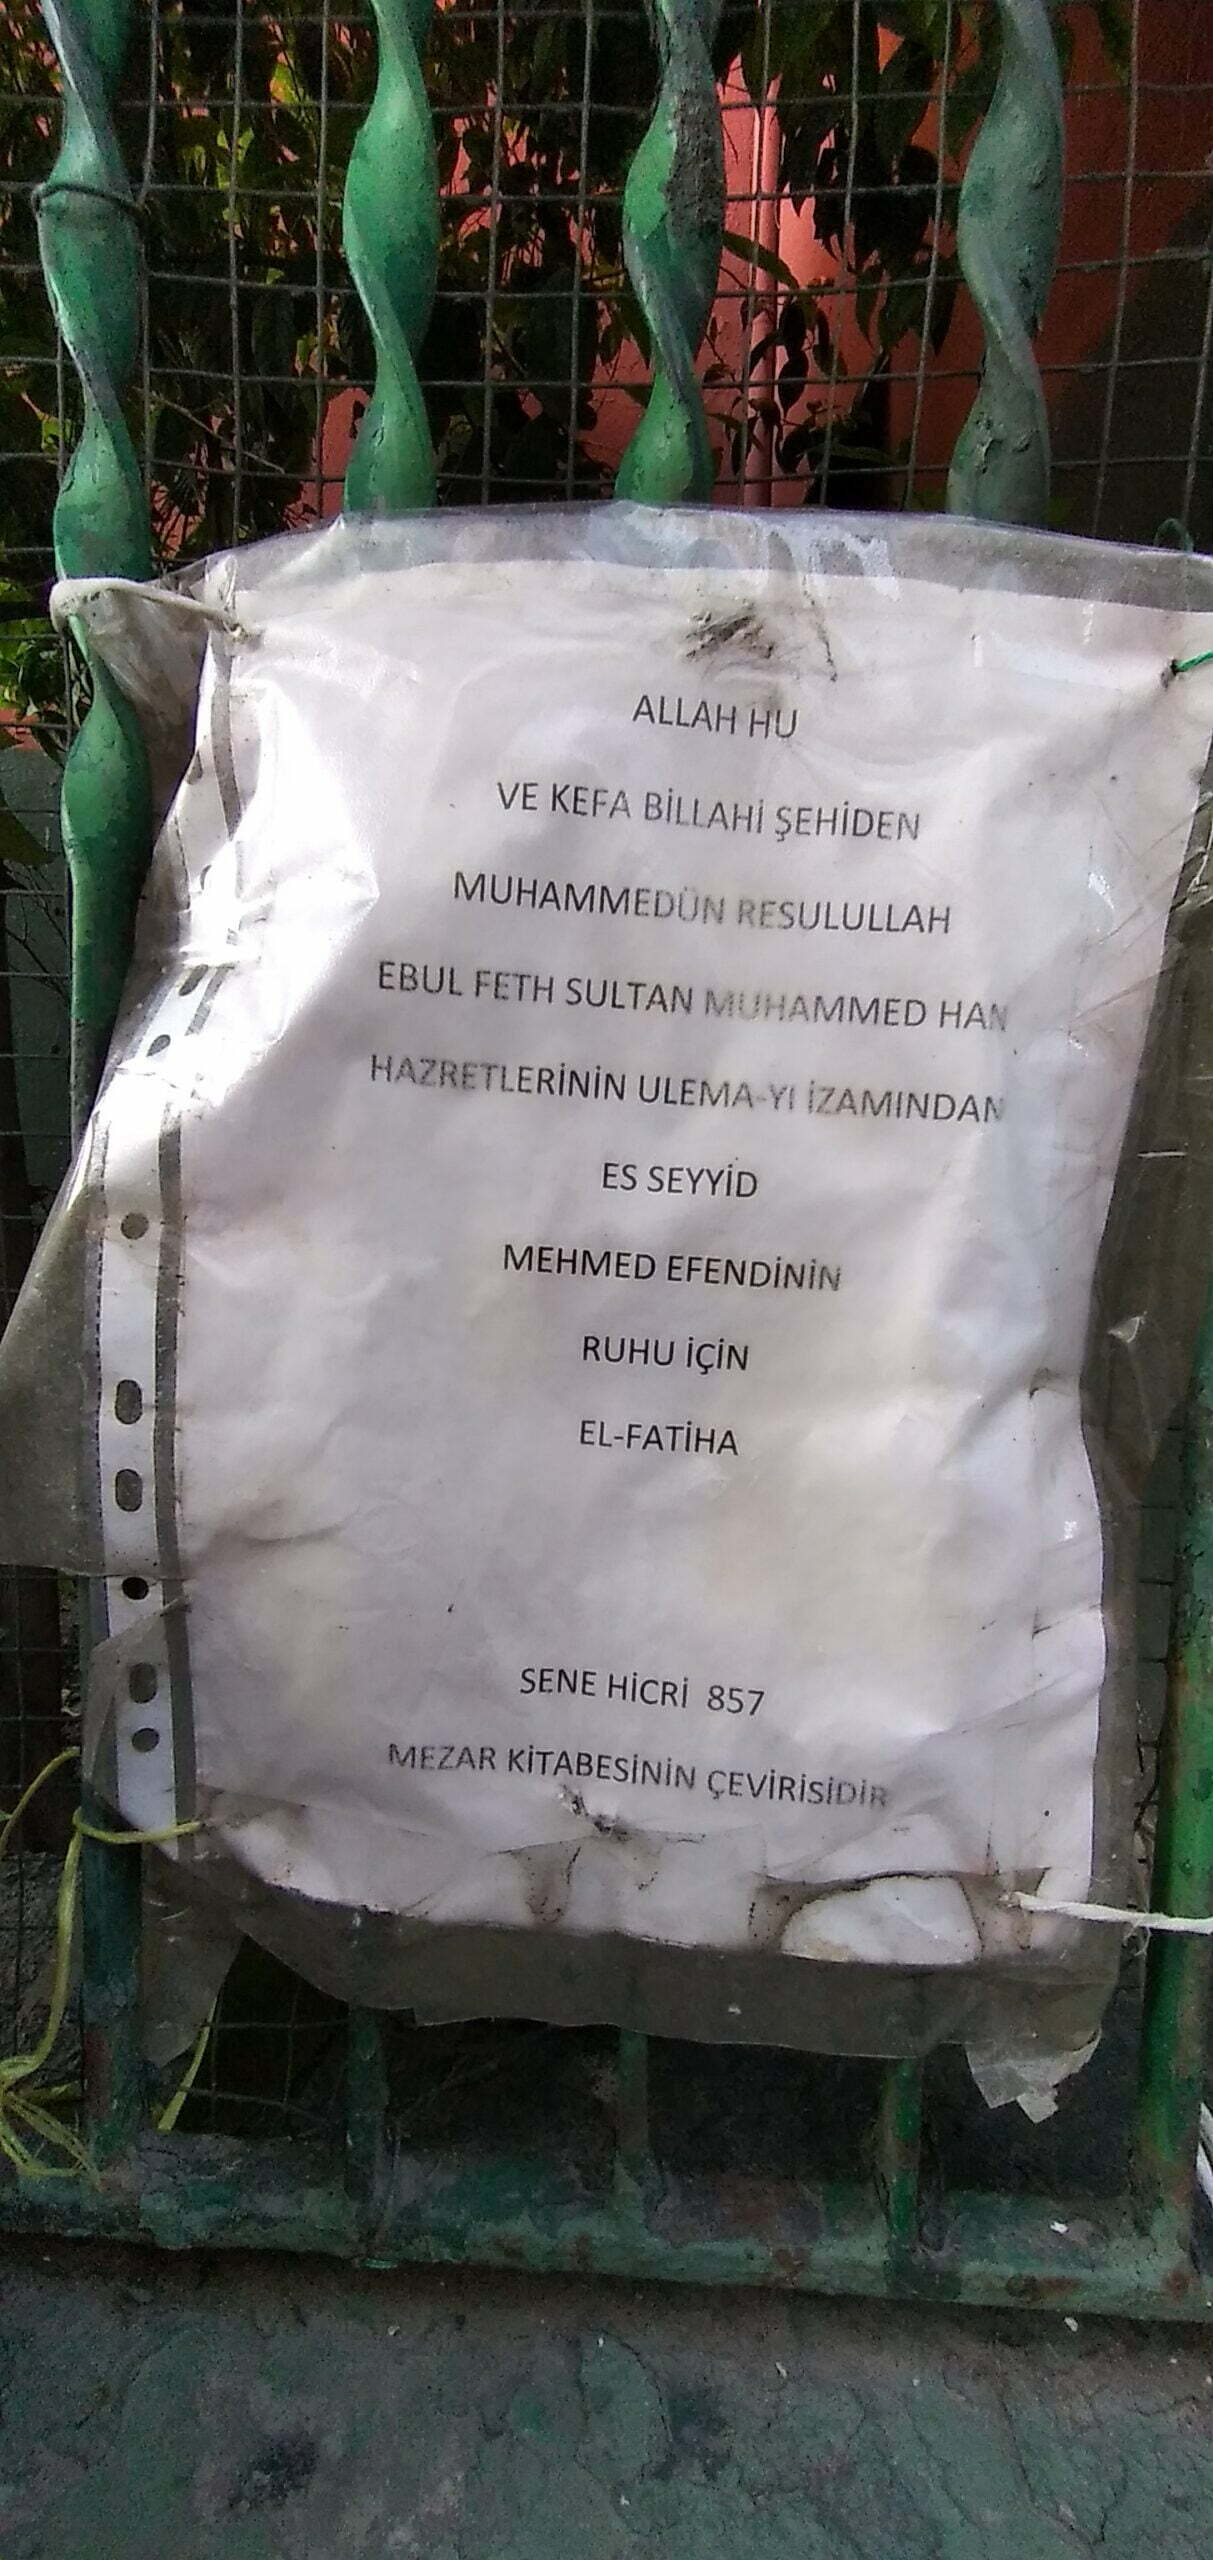 ALLAH HU
VE KEFA BİLLAHİ ŞEHİDEN
MUHAMMEDÜN RESULULLAH
EBUL FETH SULTAN MUHAMMED HAN
HAZRETLERİNİN ULEMA-YI İZAMINDAN
ES SEYYİD
MEHMED EFENDİNİN
RUHU İÇİN
EL-FATİHA
SENE HİCRİ 857
MEZAR KİTABESİNİN ÇEVİRİSİDİR